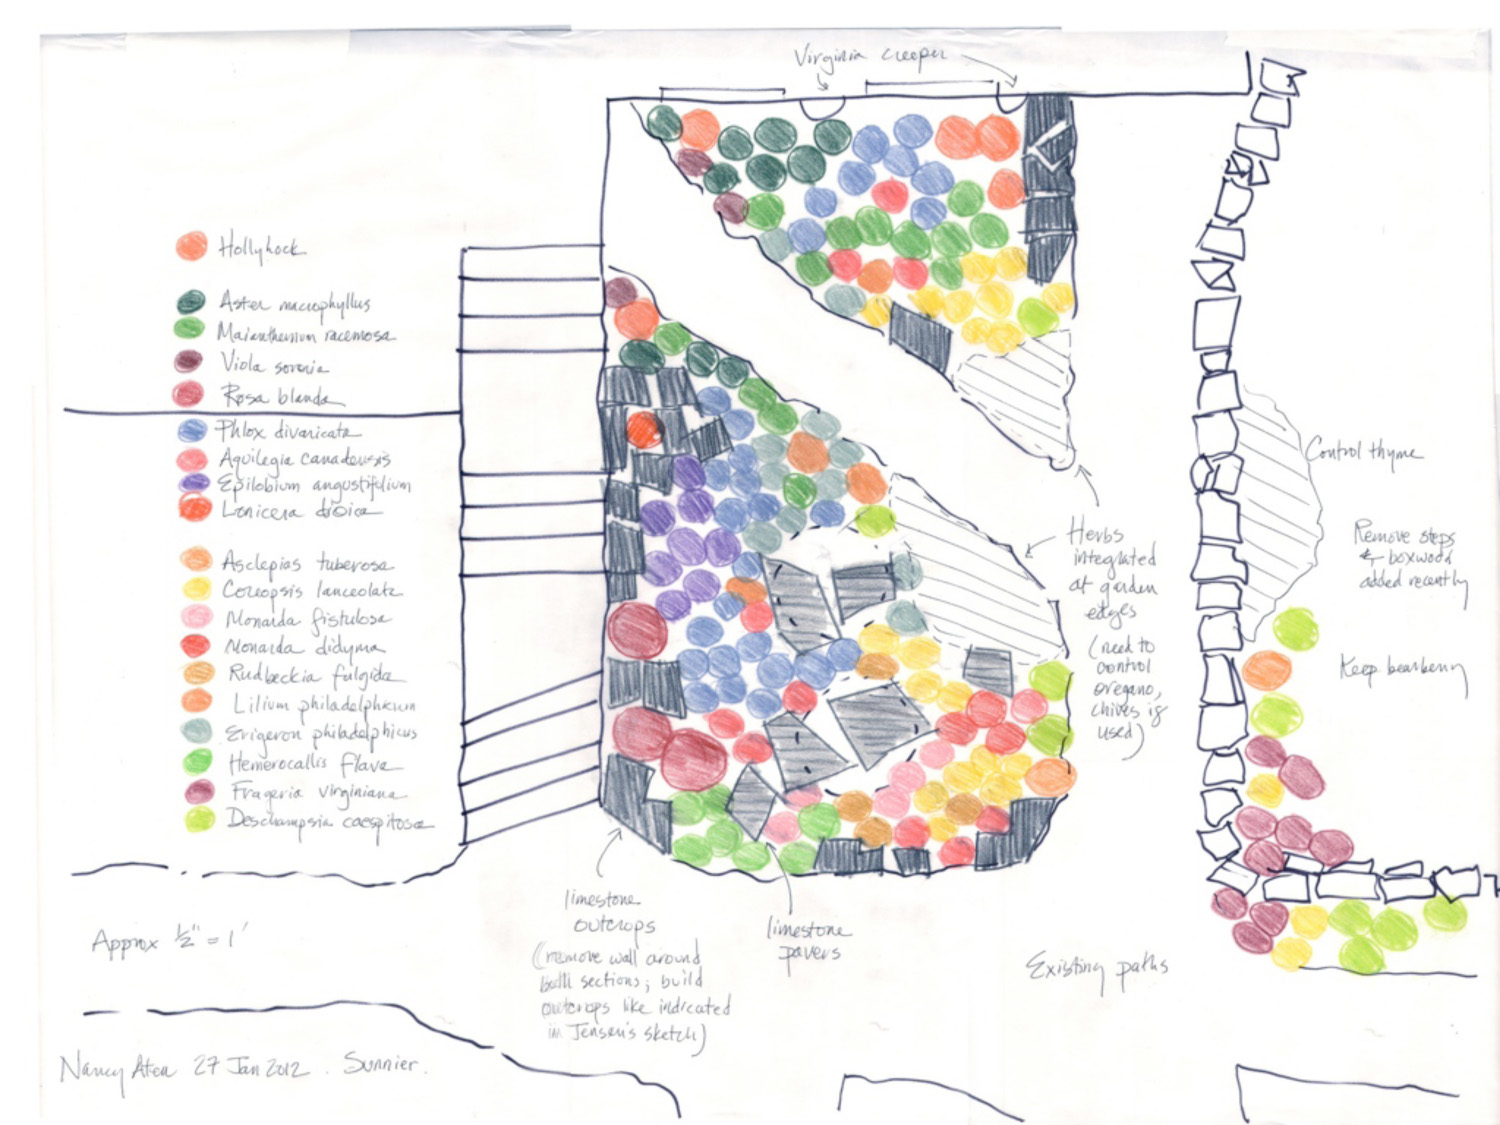 Virginia creeper
Hollyhock
Aster macrophyllus
Maianthemum racemosa
Viola sororia
Rosa blanda
Phlox divaricata
Aquilegia canadensis
Epilobium angustifolium
Lonicera dioica
Asclepias tuberosa
Coreopsis lanceolata
Monarda fistulosa
Monarda didyma
Rudbeckia fulgida
Lilium philadelphicum
Erigeron philadelphicus
Hemerocallis flava
Frageria virginiana
Deschampsia caespitosa
Control thyme
Remove steps
& boxwood
added recently
Keep bearberry
Herbs
integrated
at garden
edges
(need to
control
oregano,
chives if
used)
limestone
outcrops
(remove wall around
both sections; build
outcrops like indicated
in Jensen's sketch)
limestone
pavers
Existing paths
Approx ½" = 1'
Nancy Aten 27 Jan 2012. Sunnier.